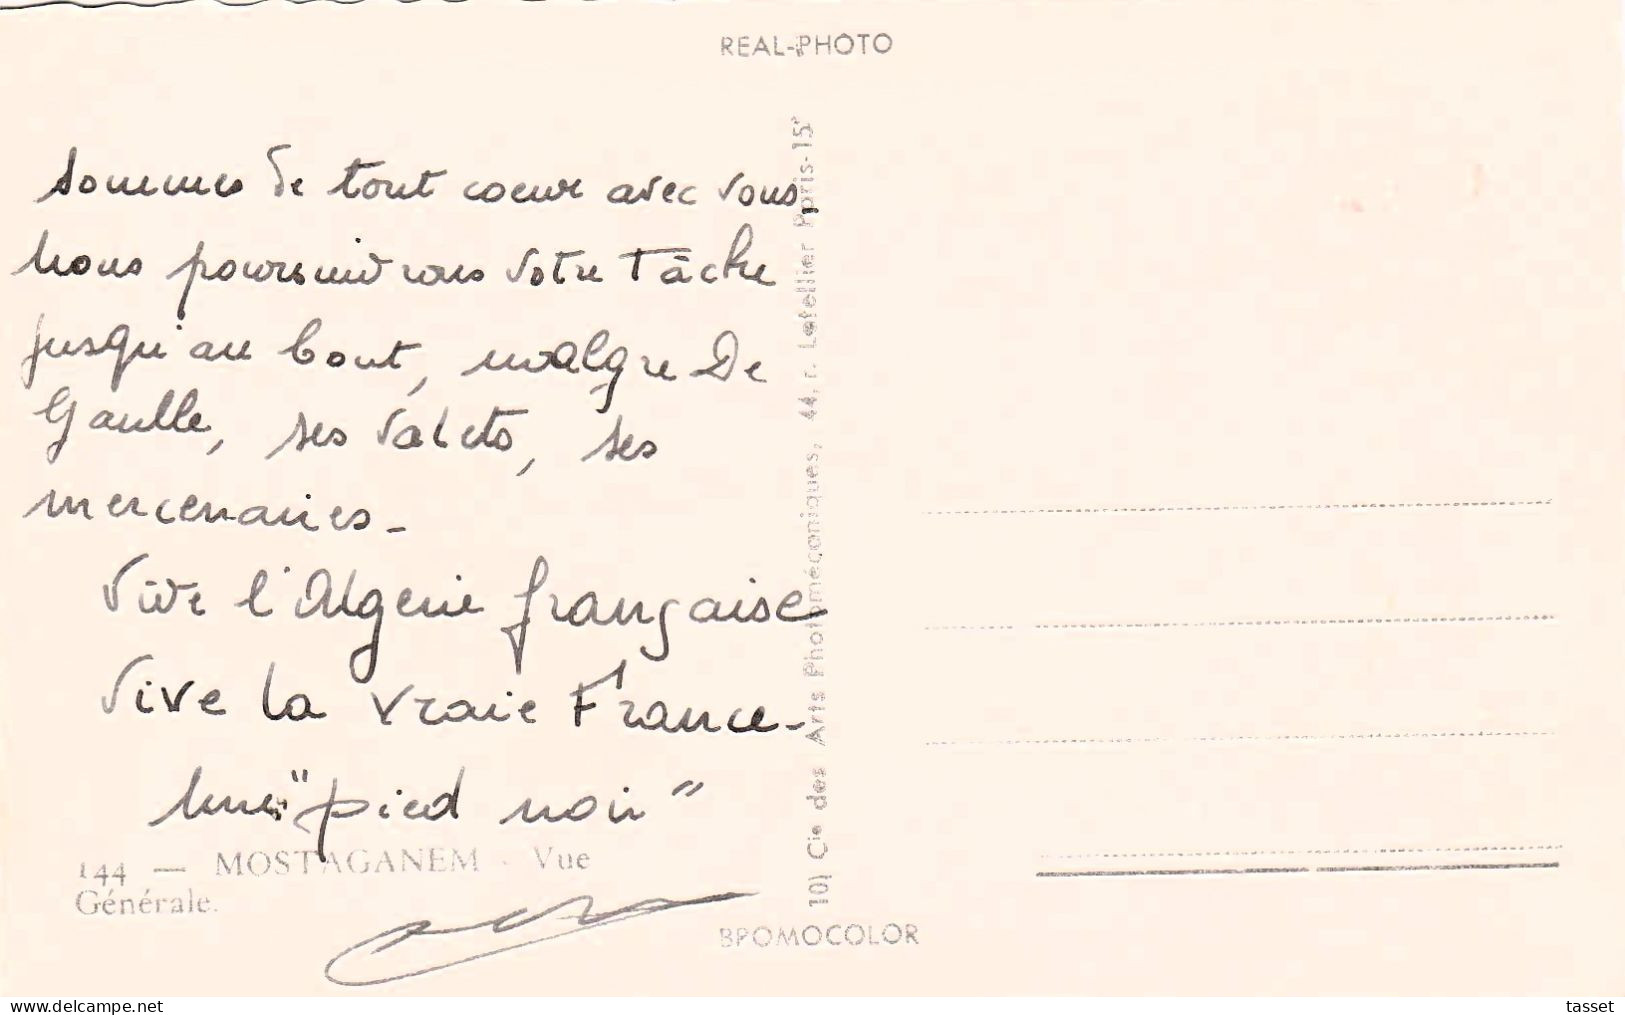 REAL-PHOTO
sommes de tout coeur avec vous,
nous poursuivrons votre tâche
jusqu'au bout, malgré De
Gaulle, ses valets, ses
mercenaires -
Vive l'Algérie française
Vive la vraie France -
Une "pied noir"
144 — MOSTAGANEM - Vue
Générale.
10) Cie des Arts Photomécaniques, 44, r. Letellier Paris-15e
BROMOCOLOR
www.delcampe.net
tasset